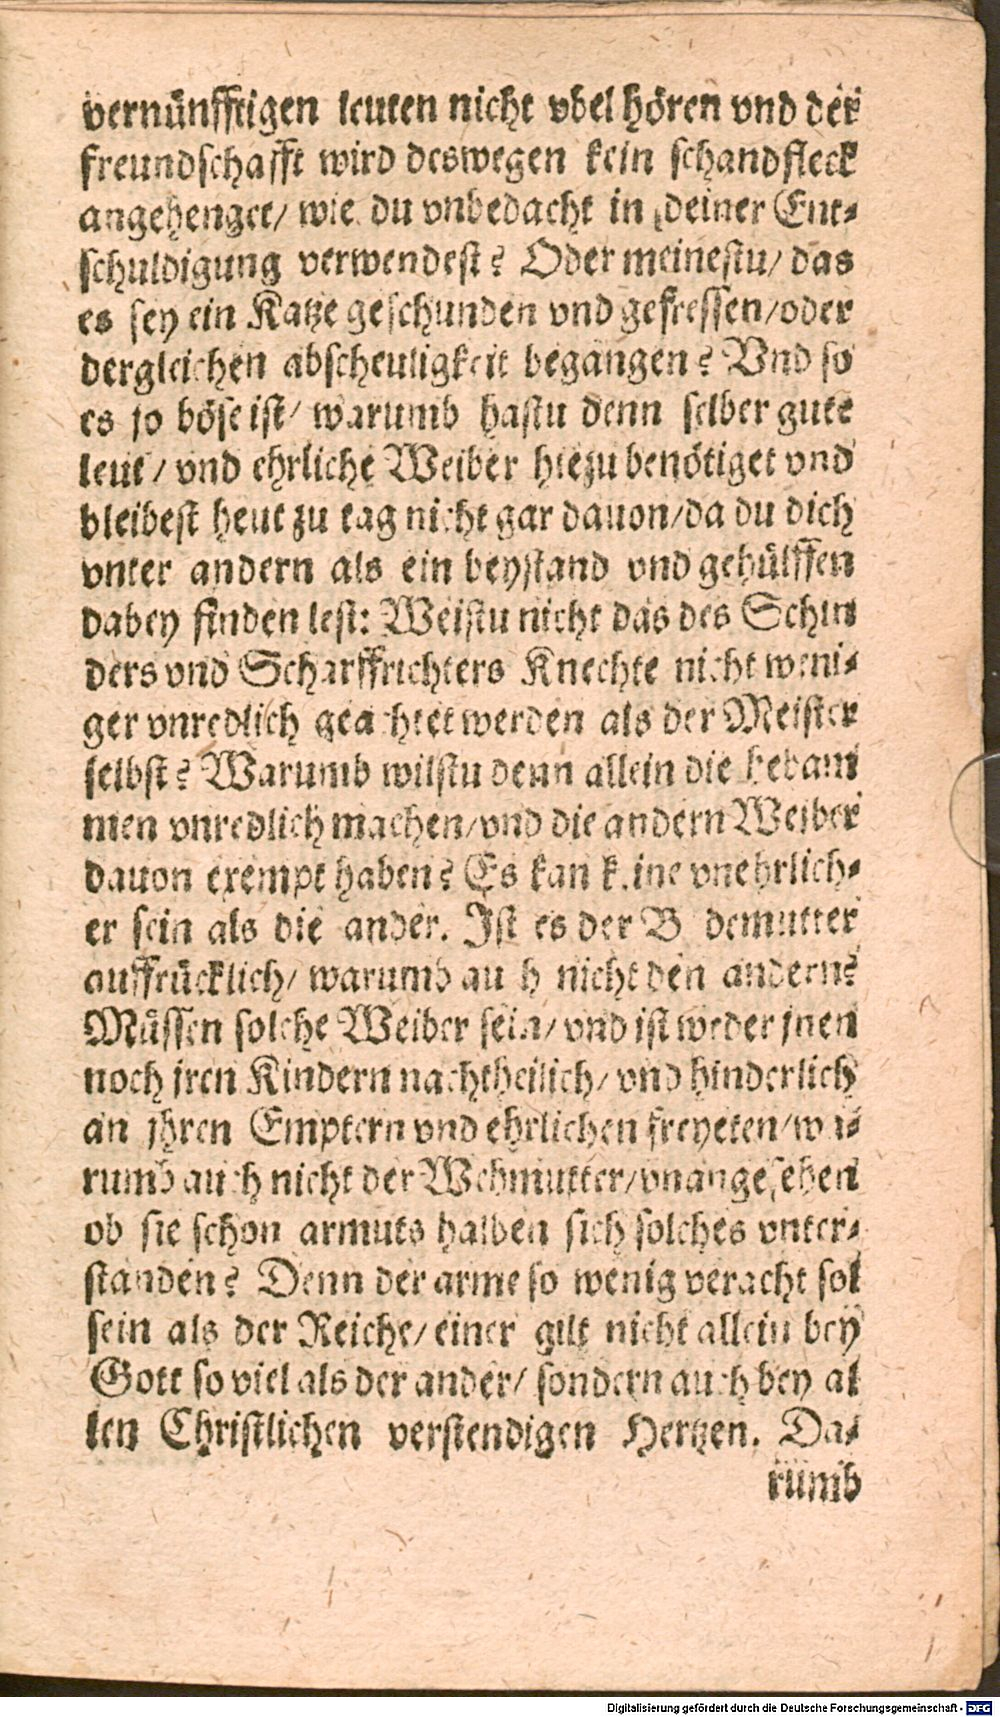 vernünfftigen leuten nicht vbel hören vnd der
freundschafft wird deswegen kein schandfleck
angehenget/ wie du vnbedacht in deiner Ent-
schuldigung verwendest? Oder meinestu/ das
es sey ein Katze geschunden vnd gefressen/ oder
dergleichen abscheuligkeit begangen? Vnd so
es jo böse ist/ warumb hastu denn selber gute
leut/ vnd ehrliche Weiber hiezu benötiget vnd
bleibest heut zu tag nicht gar dauon/ da du dich
vnter andern als ein beystand vnd gehülffen
dabey finden lest: Weistu nicht das des Schin
ders vnd Scharffrichters Knechte nicht weni-
ger vnredlich geachtet werden als der Meister
selbst? Warumb wilstu denn allein die hebam
men vnredlich machen/ vnd die andern Weiber
dauon exempt haben? Es kan keine vnehrlich-
er sein als die ander. Ist es der B demutter
auffrücklich/ warumb auch nicht den andern?
Müssen solche Weiber sein/ vnd ist weder jnen
noch jren Kindern nachtheilich/ vnd hinderlich
an jhren Emptern vnd ehrlichen freyeten/ wa-
rumb auch nicht der Wehmutter/ vnangesehen
ob sie schon armuts halben sich solches vnter-
standen? Denn der arme so wenig veracht sol
sein als der Reiche/ einer gilt nicht allein bey
Gott so viel als der ander/ sondern auch bey al
len Christlichen verstendigen Hertzen. Da-
rumb
Digitalisierung gefördert durch die Deutsche Forschungsgemeinschaft - DFG